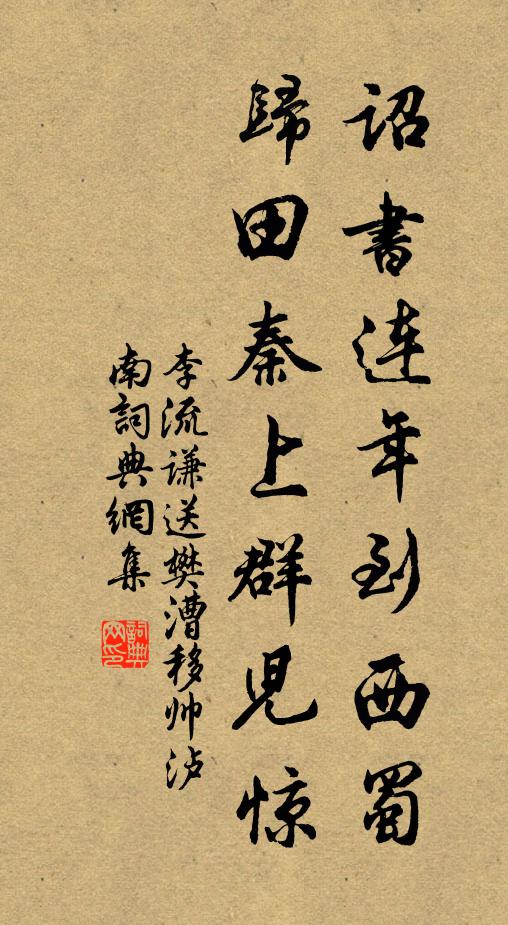 詔書連年到西蜀
歸田秦上群兒惊
李流谦送樊漕移帅泸
南詞典網集
詞典
网印